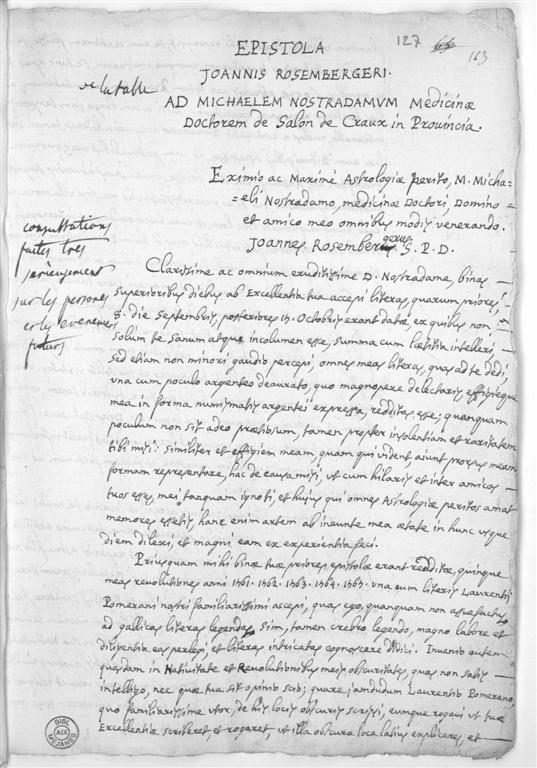 127 66 163
EPISTOLA
JOANNIS ROSEMBERGERI.
AD MICHAELEM NOSTRADAMVM Medicinæ
Doctorem de Salon de Craux in Prouincia.
de la table
Eximio ac Maximè Astrologiæ perito, M. Micha=
eli Nostradamo, medicinæ Doctori, Domino
et amico meo omnibus modis venerando.
Joannes Rosembergerus S. P. D.
consultations
faites tres
serieusement
sur les persones
et les evenemens
futurs
Clarissime ac omnium eruditissime D. Nostradame, binas
superioribus diebus ab Excellentia tua accepi literas, quarum priores,
die Septembris, posteriores 15. Octobris erant datæ, ex quibus non
solum te sanum atque incolumem esse, summa cum lætitia intellexi,
sed etiam non minori gaudio percepi, omnes meas literas, quas ad te dedi,
vna cum poculo argenteo deaurato, quo magnopere delectaris, effigieque
mea in forma numismatis argentei expressa, redditas esse; quanquam
poculum non sit adeo pretiosum, tamen propter insolentiam et raritatem
tibi misi: similiter et effigiem meam, quam qui vident, aiunt prorsus meam
formam repræsentare, hac de causa misi, vt cum hilaris et inter amicos
tuos esses, mei tanquam ignoti, et hujus qui omnes Astrologiæ peritos amat
memores essetis, hanc enim artem ab ineunte mea ætate in hunc vsque
diem dilexi, et magni eam ex experientia feci.
Priusquam mihi binæ tuæ priores epistolæ erant redditæ, quinque
meas revolutiones anni 1561. 1562. 1563. 1564. 1565. vna cum literis Laurentii
Pomerani nostri familiarissimi accepi, quas ego, quanquam non assuefactus
ad gallicas literas legendas sim, tamen crebro legendo, magno labore et
diligentia eas percepi, et literas intricatas cognoscere didici. Invenio autem
quædam in Nativitate et Revolutionibus meis obscuritates, quas non satis
intelligo, nec quæ tua sit opinio scio; quare jamdudum Laurentio Pomerano,
quo familiarissime vtor, de his locis obscuris scripsi, eumque rogavi vt tuæ
Excellentiæ scriberet, et rogaret, vt illa obscura loca latius explicares, et
BIBL
AIX
MEJANES